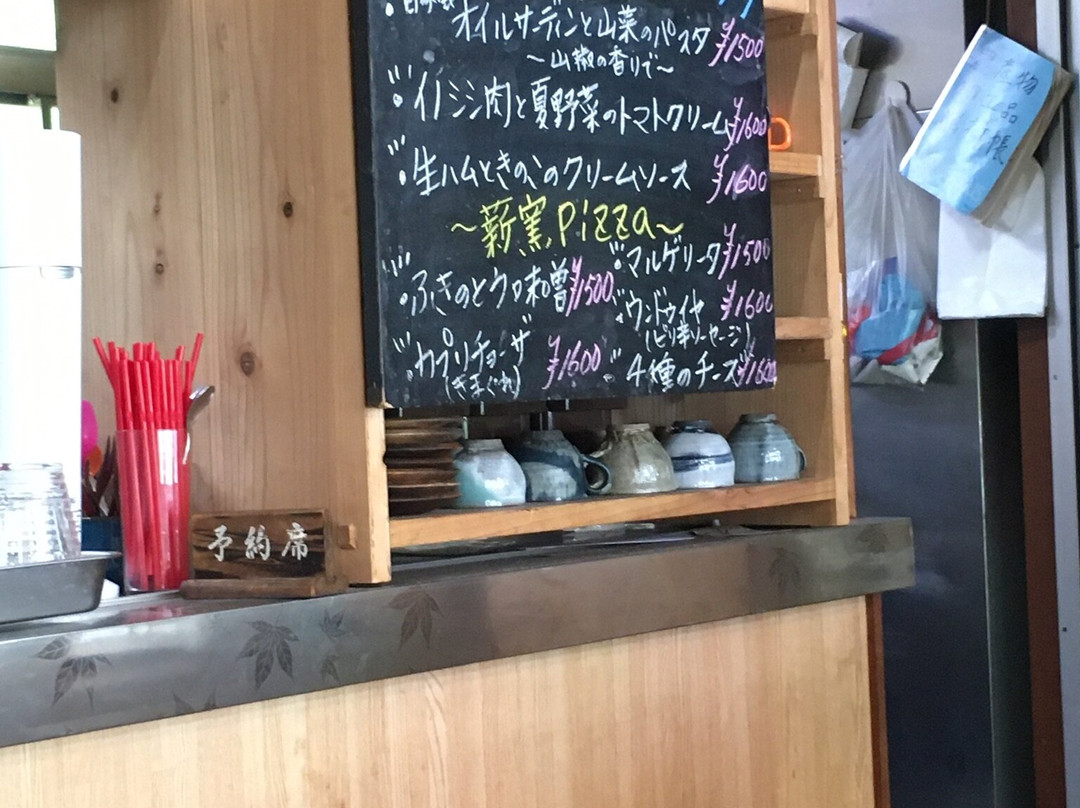 オイルサーディンと山菜のパスタ ¥1500
～山椒の香りで～
イノシシ肉と夏野菜のトマトクリーム ¥1600
生ハムときのこのクリームソース ¥1600
～薪窯pizza～
マルゲリータ ¥1500
ふきのとう味噌 ¥1500
ウンドゥイヤ ¥1600
(ピリ辛ソーセージ)
カプリチョーザ ¥1600
(きまぐれ)
4種のチーズ ¥1600
予約席